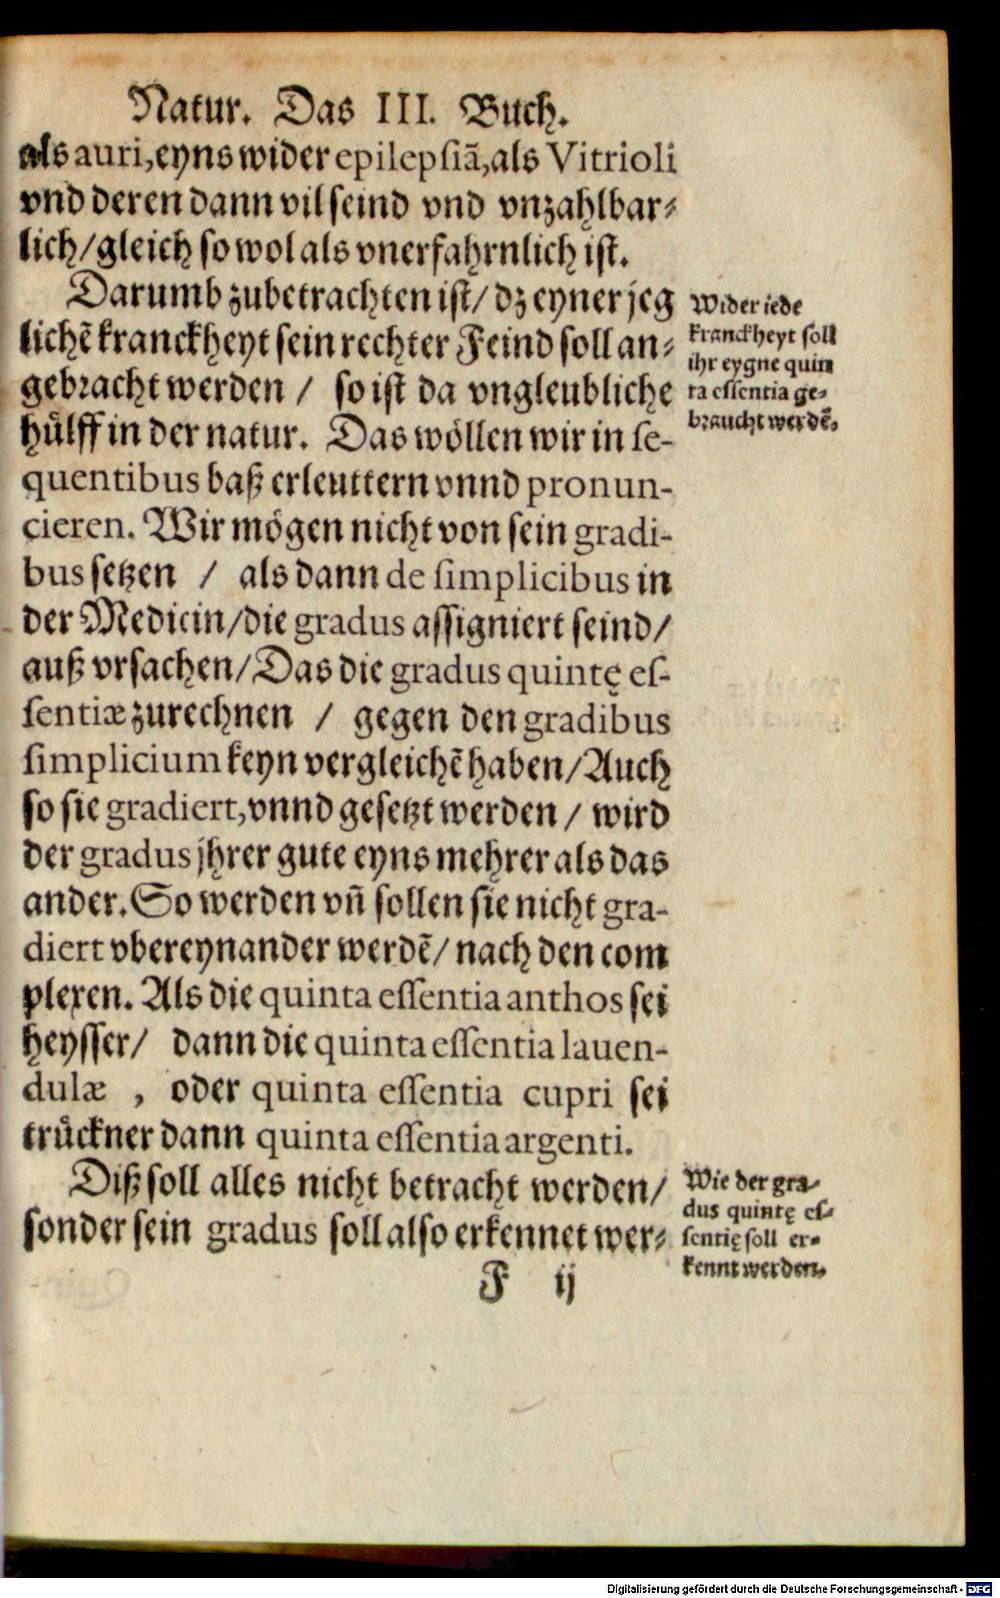 Natur. Das III. Buch.
als auri, eyns wider epilepsiā, als Vitrioli
vnd deren dann vil seind vnd vnzahlbar⸗
lich/ gleich so wol als vnerfahrnlich ist.
Darumb zubetrachten ist/ dz eyner jeg
lichē kranckheyt sein rechter Feind soll an⸗
gebracht werden / so ist da vngleubliche
hülff in der natur. Das wöllen wir in se-
quentibus baß erleuttern vnnd pronun-
cieren. Wir mögen nicht von sein gradi-
bus setzen / als dann de simplicibus in
der Medicin/ die gradus assigniert seind/
auß vrsachen/ Das die gradus quintę es-
sentiæ zurechnen / gegen den gradibus
simplicium keyn vergleichē haben/ Auch
so sie gradiert, vnnd gesetzt werden / wird
der gradus jhrer gute eyns mehrer als das
ander. So werden vñ sollen sie nicht gra-
diert vbereynander werdē/ nach den com
plexen. Als die quinta essentia anthos sei
heysser/ dann die quinta essentia lauen-
dulæ , oder quinta essentia cupri sei
trückner dann quinta essentia argenti.
Diß soll alles nicht betracht werden/
sonder sein gradus soll also erkennet wer⸗
F ij
Wider iede
kranckheyt soll
ihr eygne quin
ta essentia ge⸗
braucht werdē.
Wie der gra⸗
dus quintę es⸗
sentię soll er⸗
kennt werden.
Digitalisierung gefördert durch die Deutsche Forschungsgemeinschaft - DFG